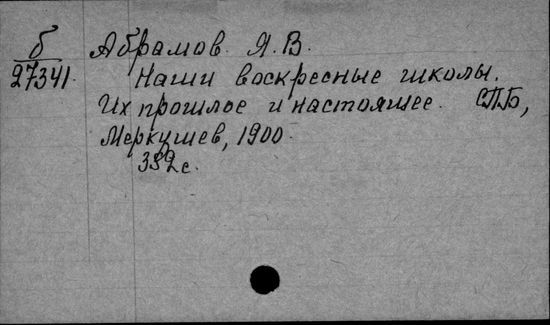 б Абрамов Я.В.
27341. Наши воскресные школы.
Их прошлое и настоящее. СПБ,
Меркушев, 1900.
352с.